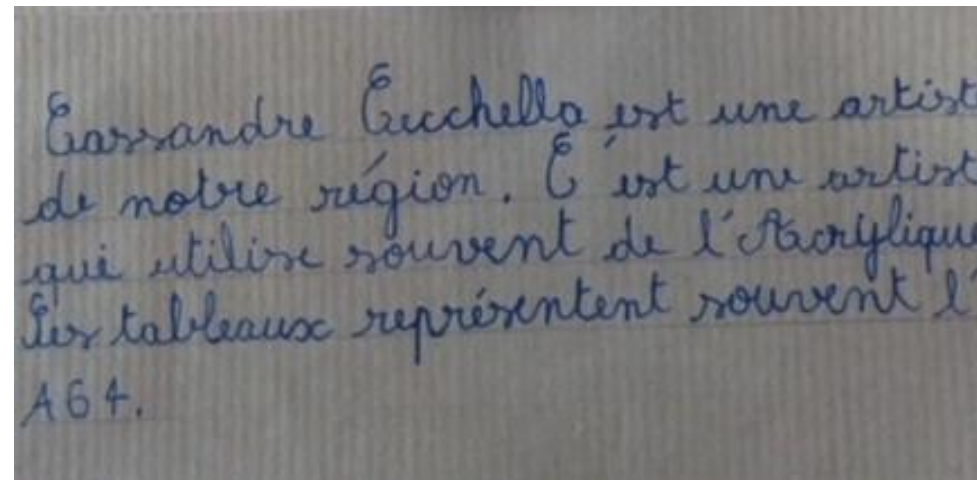 Cassandre Cucchella est une artist
de notre région. C'est une artist
qui utilise souvent de l'Acrylique
Ses tableaux représentent souvent l'
A64.